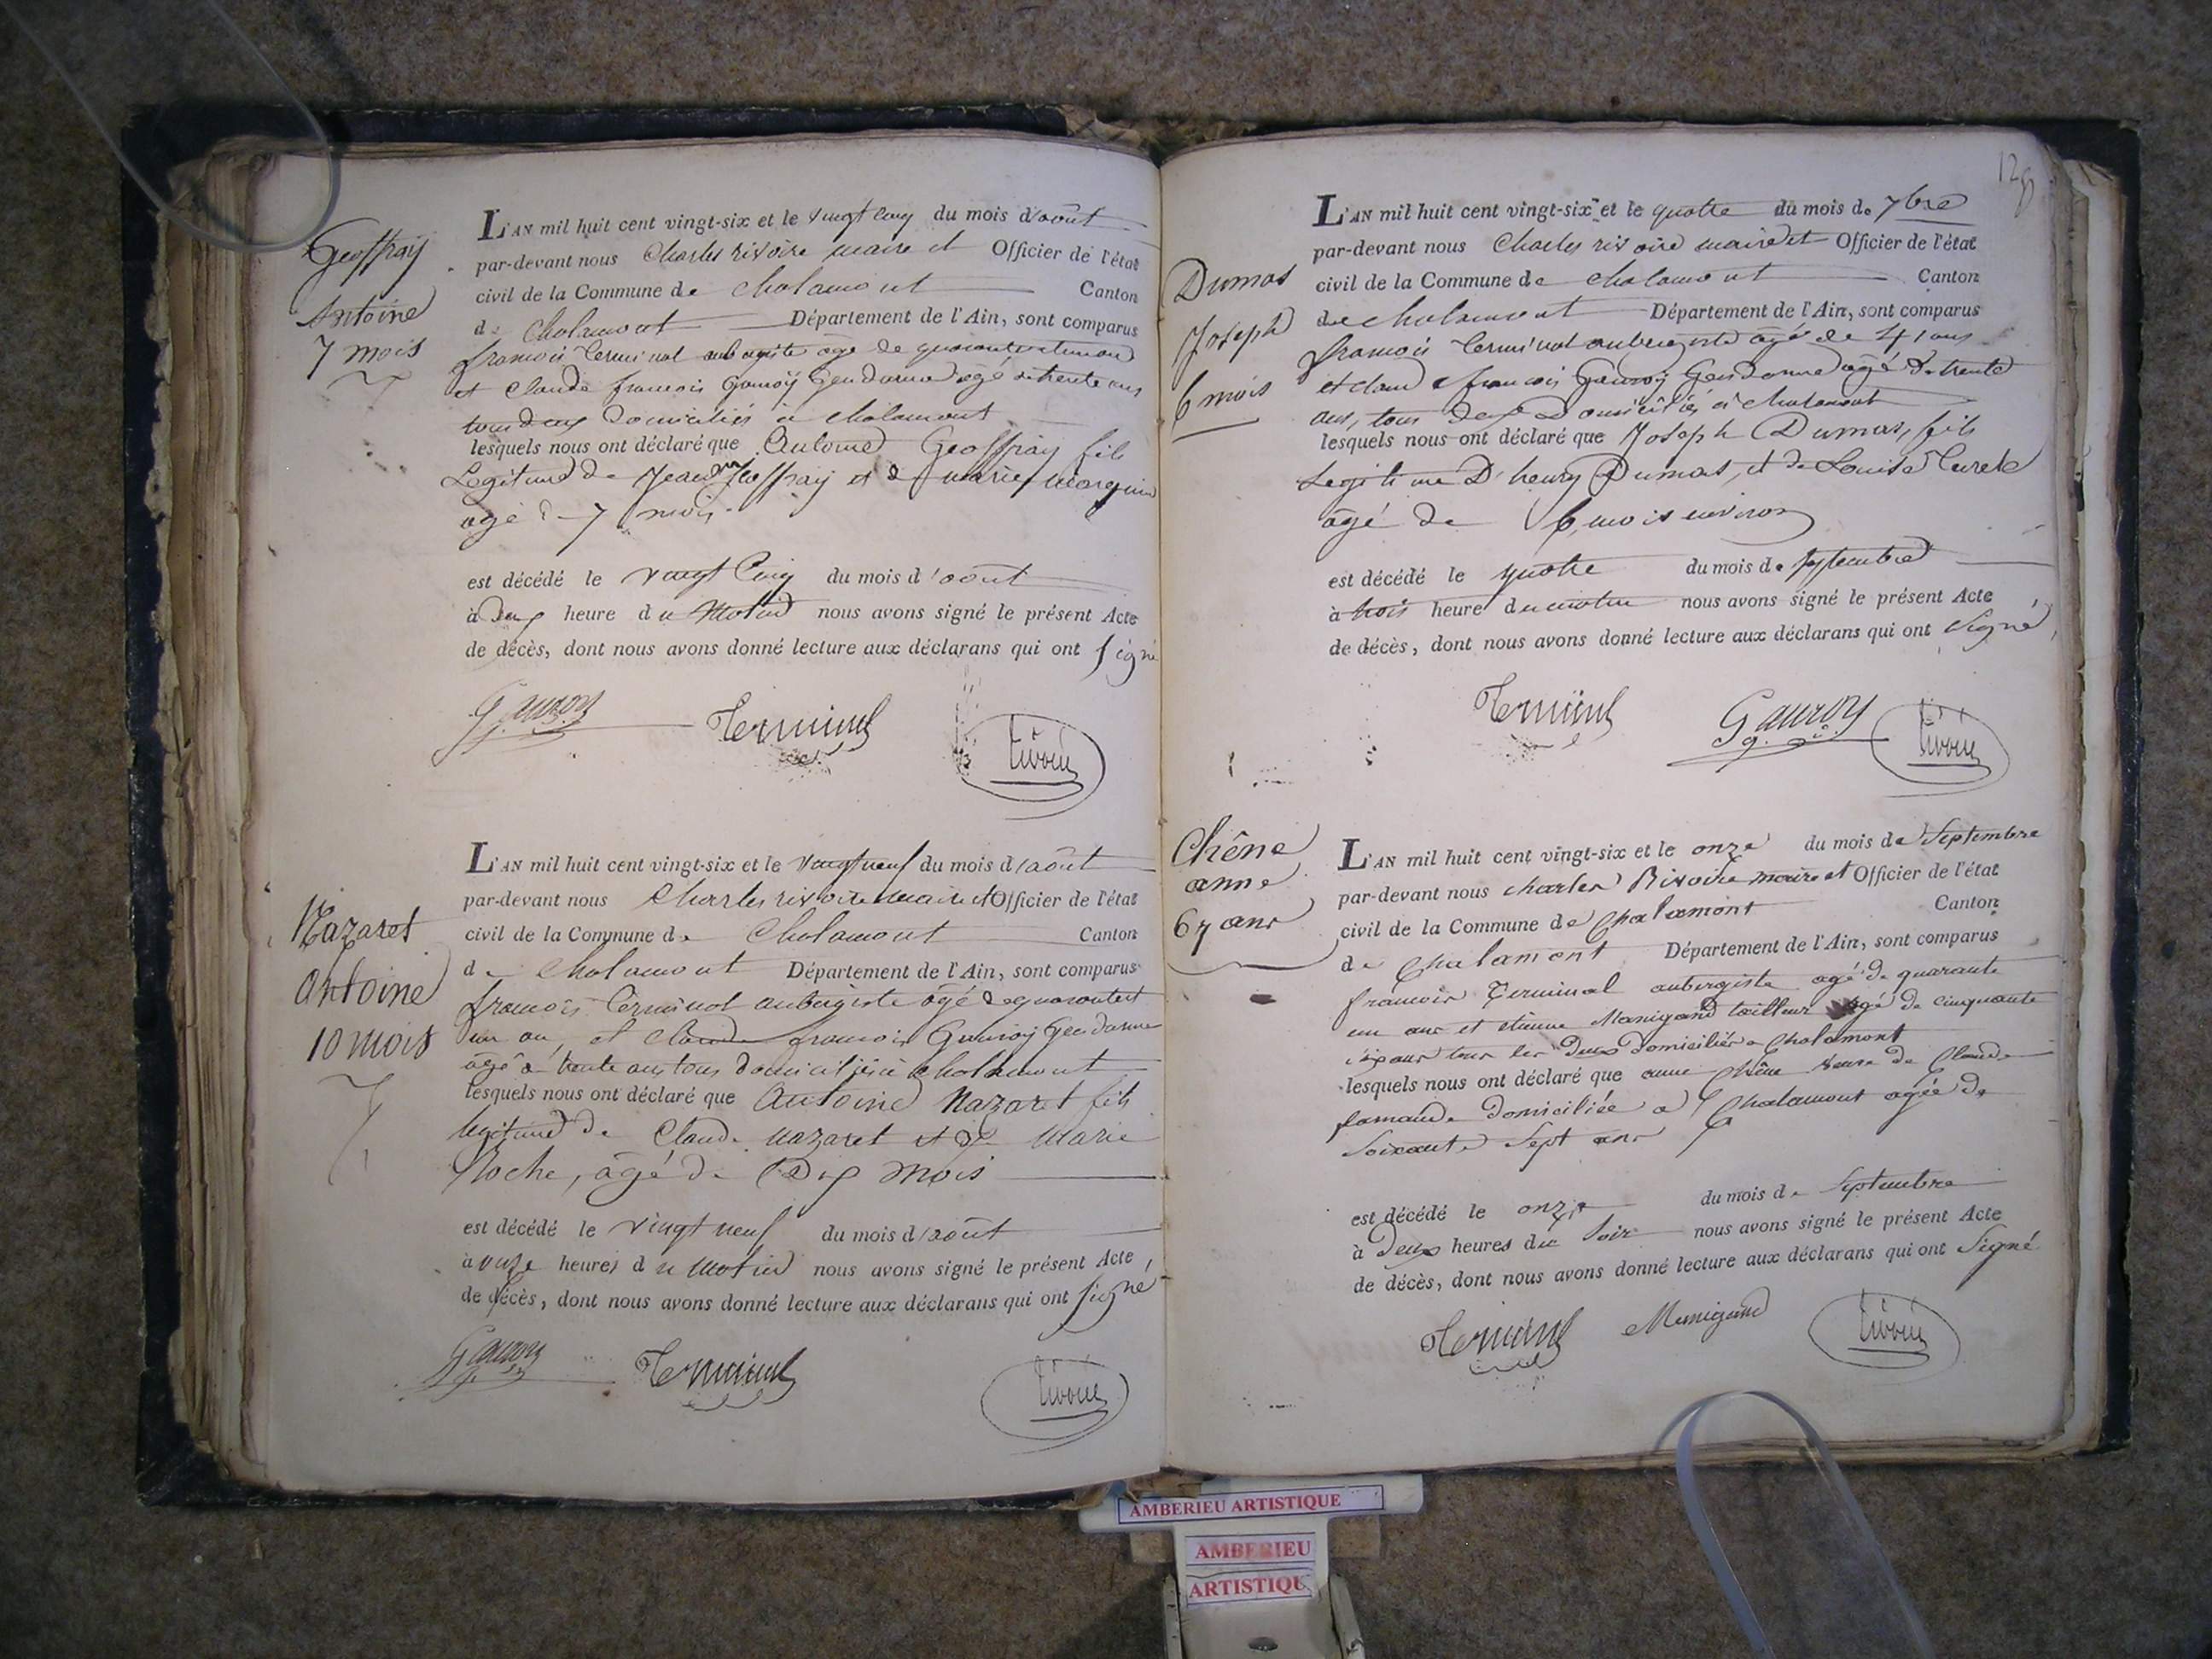 Geoffray
Antoine
7 mois
L'AN mil huit cent vingt-six et le vingt cinq du mois d'août
par-devant nous Charles rivoire maire et Officier de l'état
civil de la Commune de Chalamont Canton
de Chalamont Département de l'Ain, sont comparus
francois Terminal aubergiste âgé de quarante et un an
et Claude francois Gauroy Gendarme âgé de trente ans
tous deux domiciliés à chalamont
lesquels nous ont déclaré que Antoine Geoffray fils
Legitime de Jean Geoffray et de marie
âgé de 7 mois
est décédé le vingt Cinq du mois d'août
à Deux heure du Matin nous avons signé le présent Acte
de décès, dont nous avons donné lecture aux déclarans qui ont signé
Gauroy Terminal rivoire
Nazaret
Antoine
10 mois
L'AN mil huit cent vingt-six et le Vingt neuf du mois d'août
par-devant nous Charles rivoire maire et Officier de l'état
civil de la Commune de Chalamont Canton
de Chalamont Département de l'Ain, sont comparus
francois Terminal aubergiste âgé de quarante et
un an, et Claude francois Gauroy Gendarme
âgé de trente ans tous domiciliés à Chalamont
lesquels nous ont déclaré que Antoine Nazaret fils
legitime de Claude Nazaret et de Marie
Roche, âgé de Dix Mois
est décédé le vingt neuf du mois d'août
à onze heures du Matin nous avons signé le présent Acte
de décès, dont nous avons donné lecture aux déclarans qui ont signé
Gauroy Terminal rivoire
128
Dumas
Joseph
6 mois
L'AN mil huit cent vingt-six et le quatre du mois de 7bre
par-devant nous Charles rivoire maire et Officier de l'état
civil de la Commune de Chalamont Canton
de Chalamont Département de l'Ain, sont comparus
francois Terminal aubergiste âgé de 41 ans
et claude francois Gauroy Gendarme âgé de trente
ans, tous deux Domiciliés à Chalamont
lesquels nous ont déclaré que Joseph Dumas, fils
Legitime D'henry Dumas, et de Louise
âgé de 6 mois environ
est décédé le quatre du mois de septembre
à trois heure du matin nous avons signé le présent Acte
de décès, dont nous avons donné lecture aux déclarans qui ont signé
Terminal Gauroy rivoire
Chêne
anne
67 ans
L'AN mil huit cent vingt-six et le onze du mois de Septembre
par-devant nous charles Rivoire maire et Officier de l'état
civil de la Commune de Chalamont Canton
de Chalamont Département de l'Ain, sont comparus
francois Terminal aubergiste agé de quarante
un ans et etienne Manigand tailleur agé de cinquante
six ans tous les Deux Domiciliés a Chalamont
lesquels nous ont déclaré que anne Chêne veuve de Claude
domiciliée a Chalamont agée de
Soixante Sept ans
est décédé le onze du mois de Septembre
à Deux heures du Soir nous avons signé le présent Acte
de décès, dont nous avons donné lecture aux déclarans qui ont Signé
Terminal Manigand rivoire
AMBERIEU ARTISTIQUE
AMBERIEU
ARTISTIQU